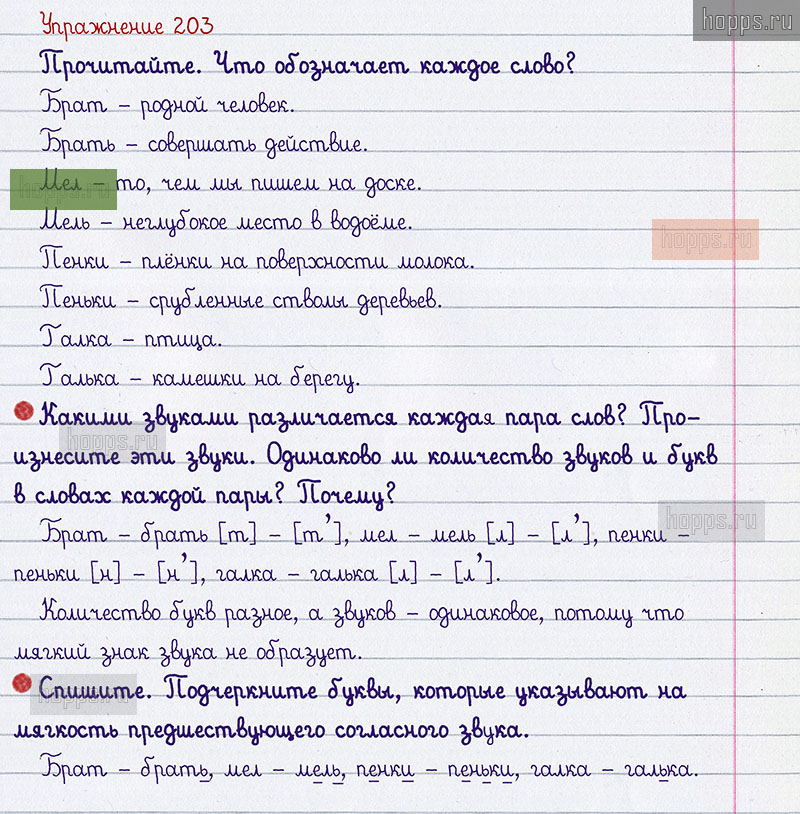 hopps.ru
Упражнение 203
Прочитайте. Что обозначает каждое слово?
Брат – родной человек.
Брать – совершать действие.
Мел – то, чем мы пишем на доске.
hopps.ru
Мель – неглубокое место в водоёме.
hopps.ru
Пенки – плёнки на поверхности молока.
Пеньки – срубленные стволы деревьев.
Галка – птица.
Галька – камешки на берегу.
Какими звуками различается каждая пара слов? Про–
hopps.ru
изнесите эти звуки. Одинаково ли количество звуков и букв
в словах каждой пары? Почему?
hopps.ru
Брат – брать [т] – [т’], мел – мель [л] – [л’], пенки –
пеньки [н] – [н’], галка – галька [л] – [л’].
Количество букв разное, а звуков – одинаковое, потому что
мягкий знак звука не образует.
Спишите. Подчеркните буквы, которые указывают на
hopps.ru
мягкость предшествующего согласного звука.
Брат – брать, мел – мель, пенки – пеньки, галка – галька.